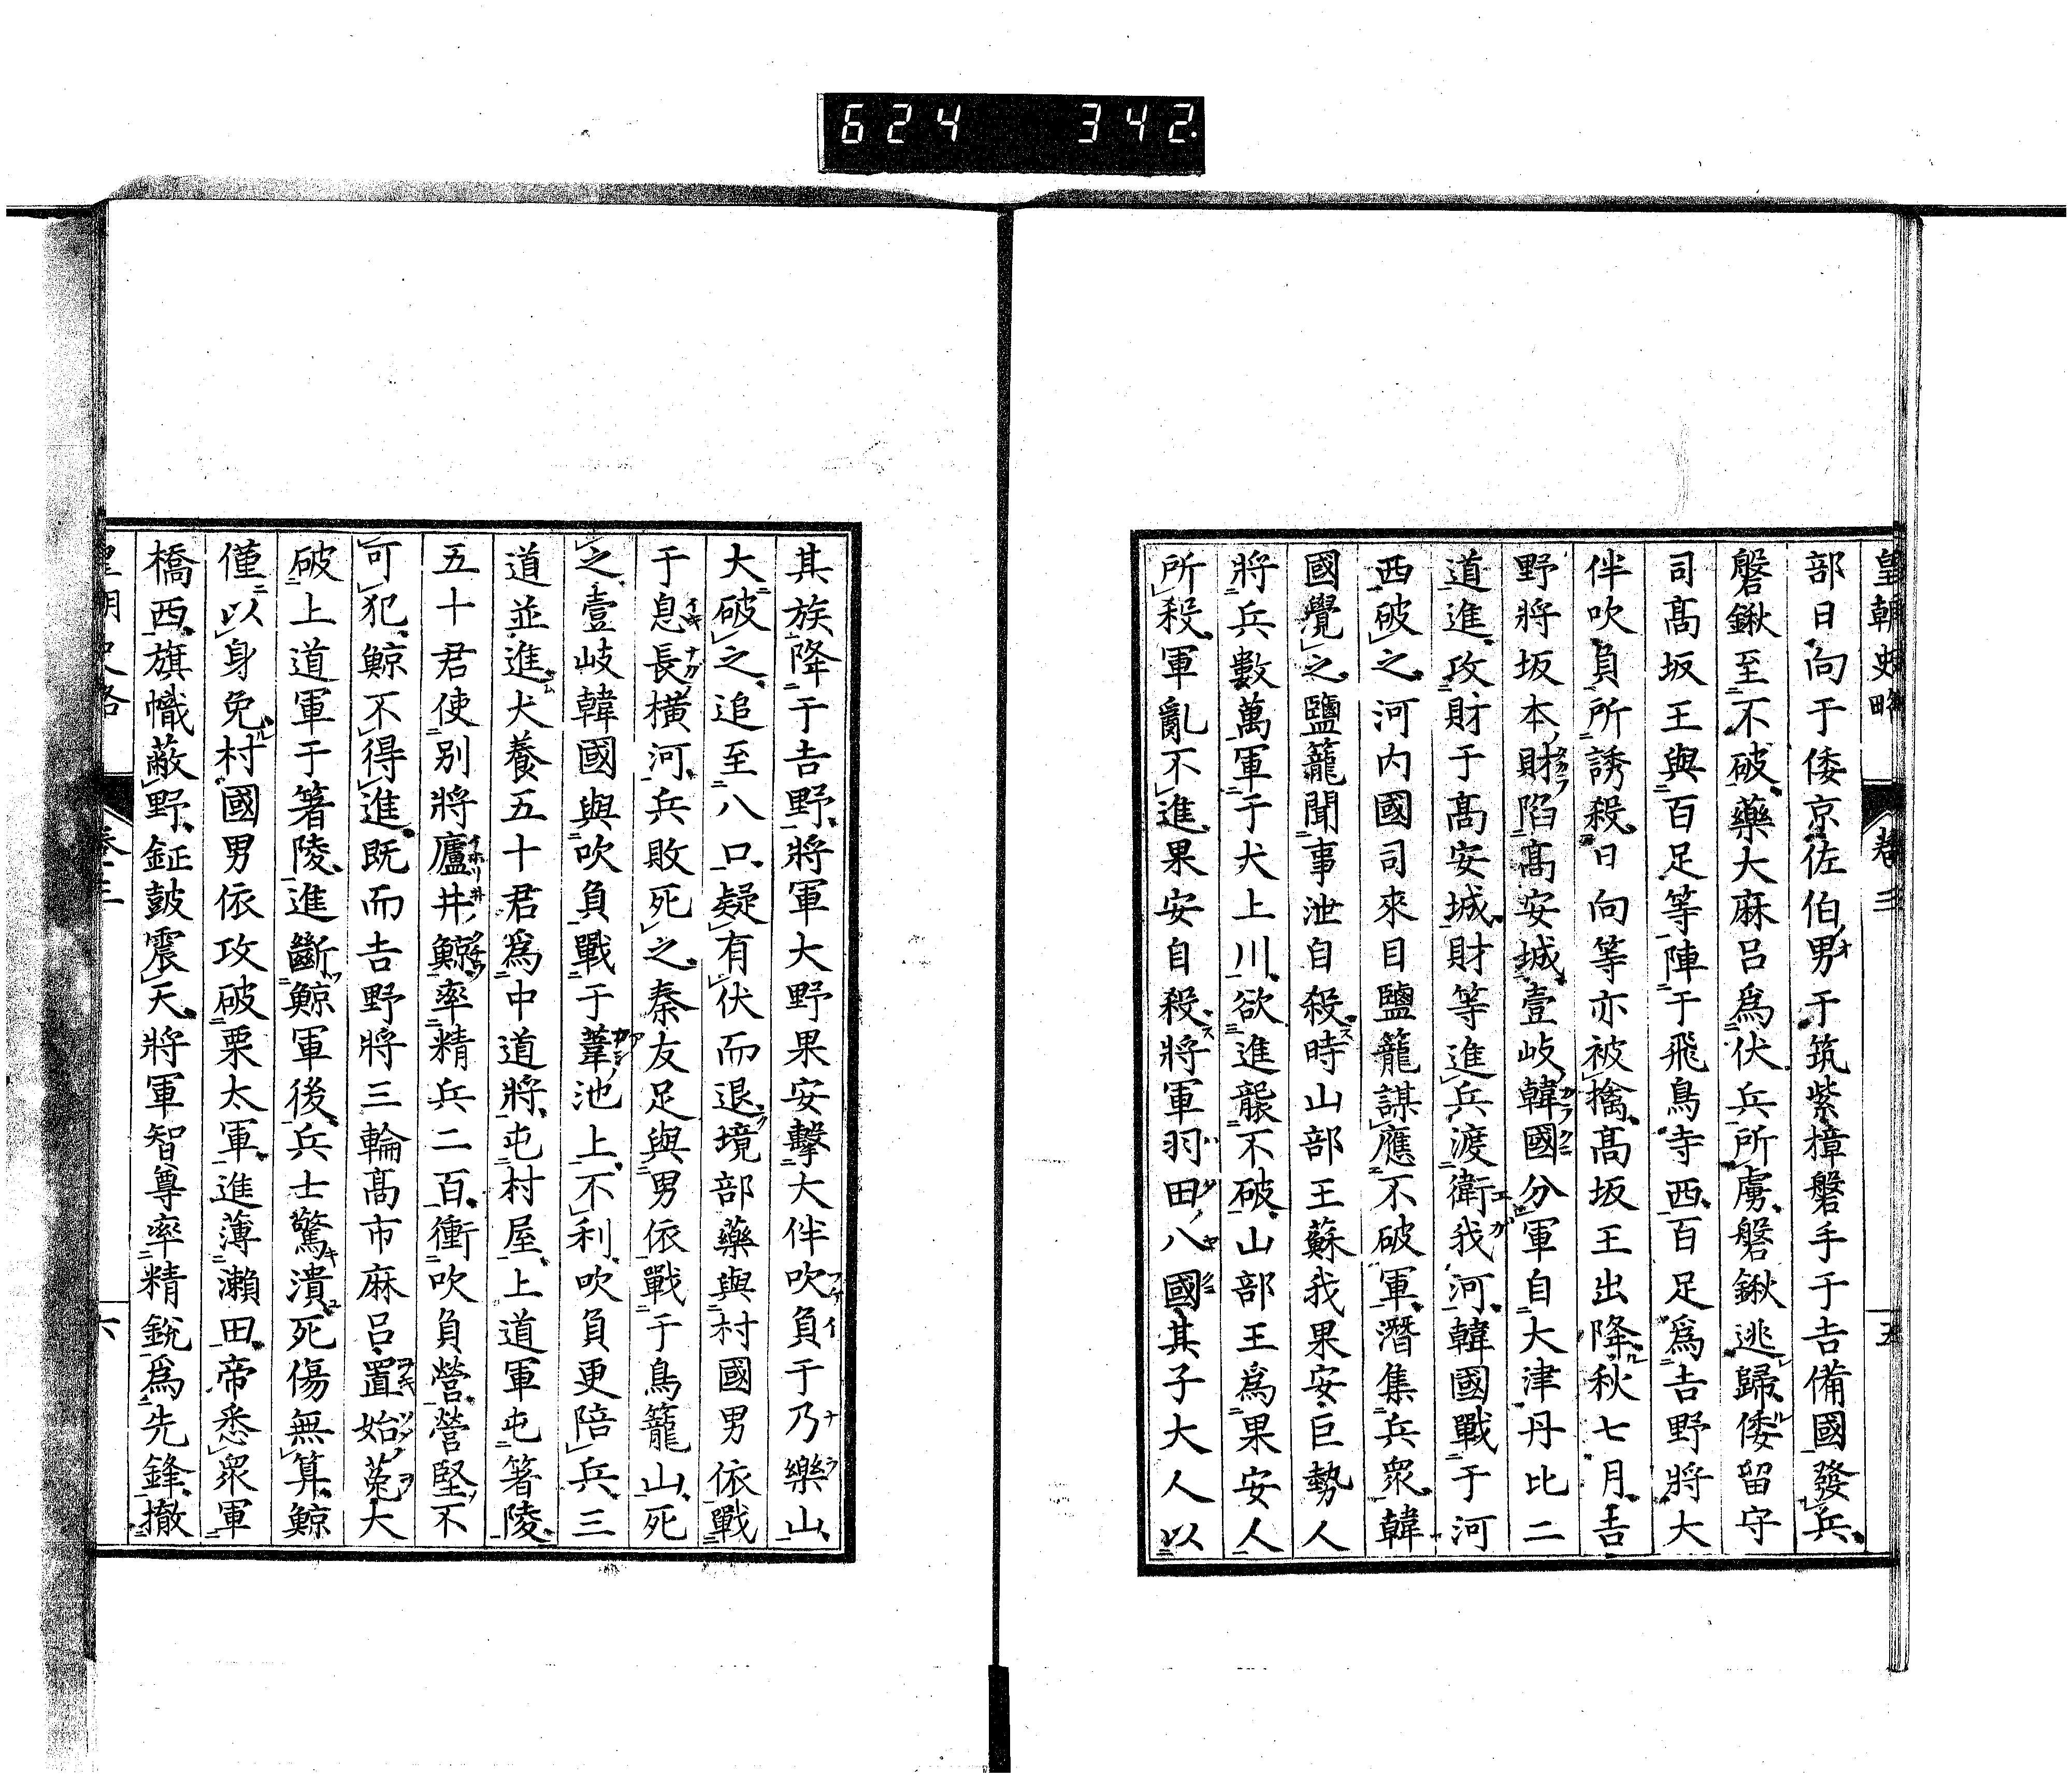 624 342.
皇朝史略 卷三 五
部日向于倭京佐伯男于筑紫樟磐手于吉備國發兵
磐鍬至不破藥大麻呂爲伏兵所虜磐鍬逃歸倭留守
司髙坂王與百足等陣于飛鳥寺西百足爲吉野將大
伴吹負所誘殺日向等亦被擒髙坂王出降秋七月吉
野將坂本財陷髙安城壹岐韓國分軍自大津丹比二
道進攻財于髙安城財等進兵渡衛我河韓國戰于河
西破之河内國司來目鹽籠謀應不破軍潛集兵衆韓
國覺之鹽籠聞事泄自殺時山部王蘇我果安巨勢人
將兵數萬軍于犬上川欲進襲不破山部王爲果安人
所殺軍亂不進果安自殺將軍羽田八國其子大人以
其族降于吉野將軍大野果安擊大伴吹負于乃樂山
大破之追至八口疑有伏而退境部藥與村國男依戰
于息長橫河兵敗死之秦友足與男依戰于鳥籠山死
之壹岐韓國與吹負戰于葦池上不利吹負更陪兵三
道並進犬養五十君爲中道將屯村屋上道軍屯箸陵
五十君使別將廬井鯨率精兵二百衝吹負營營堅不
可犯鯨不得進既而吉野將三輪髙市麻呂置始菟大
破上道軍于箸陵進斷鯨軍後兵士驚潰死傷無算鯨
僅以身免村國男依攻破栗太軍進薄瀨田帝悉衆軍
橋西旗幟蔽野鉦鼓震天將軍智尊率精銳爲先鋒撤
皇朝史略 卷三 六